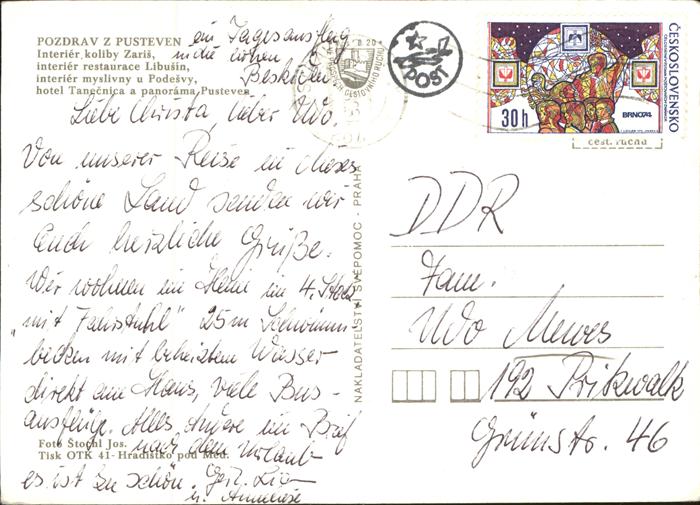 POZDRAV Z PUSTEVEN
Interiér koliby Zariš,
interiér restaurace Libušín,
interiér myslivny u Podešvy,
hotel Tanečnica a panoráma Pusteven
ein Tagesausflug
in die hohen
Beskiden
Liebe Christa, lieber Udo.
Von unserer Reise in dieses
schöne Land senden wir
Euch herzliche Grüße.
Wir wohnen im Heim im 4. Stock
"mit Fahrstuhl" 25m Schwimm
becken mit beheiztem Wasser
direkt am Haus, viele Bus-
ausflüge. Alles Andere im Brief
nach dem Urlaub
es ist so schön.
u. Anneliese
Foto Štochl Jos.
Tisk OTK 41 - Hradištko pod Med.
NAKLADATELSTVÍ SVÉPOMOC - PRAHA
POST
ČESKOSLOVENSKO
30h
BRNO74
čest. ruchu
DDR
Fam.
Udo Mewes
192 Pritzwalk
Grünstr. 46